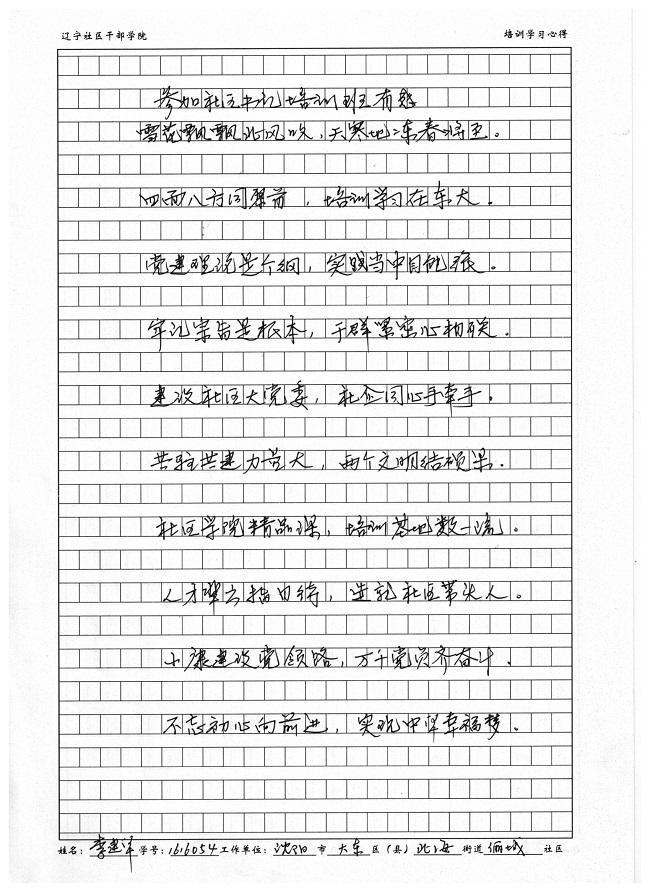 辽宁社区干部学院 培训学习心得
参加社区书记培训班有感
雪花飘飘北风吹，天寒地冻春将至。
四面八方同聚首，培训学习在东大。
党建理论是个纲，实践当中目能张。
牢记宗旨是根本，干群紧密心相联。
建设社区大党委，社企同心手牵手。
共驻共建力量大，两个文明结硕果。
社区学院精品课，培训基地数一流。
人才辈出指日待，造就社区带头人。
小康建设党领路，万千党员齐奋斗。
不忘初心向前进，实现中华幸福梦。
姓名：李建 学号：1616054 工作单位：沈阳 市 大东 区（县）北海 街道 俪城 社区